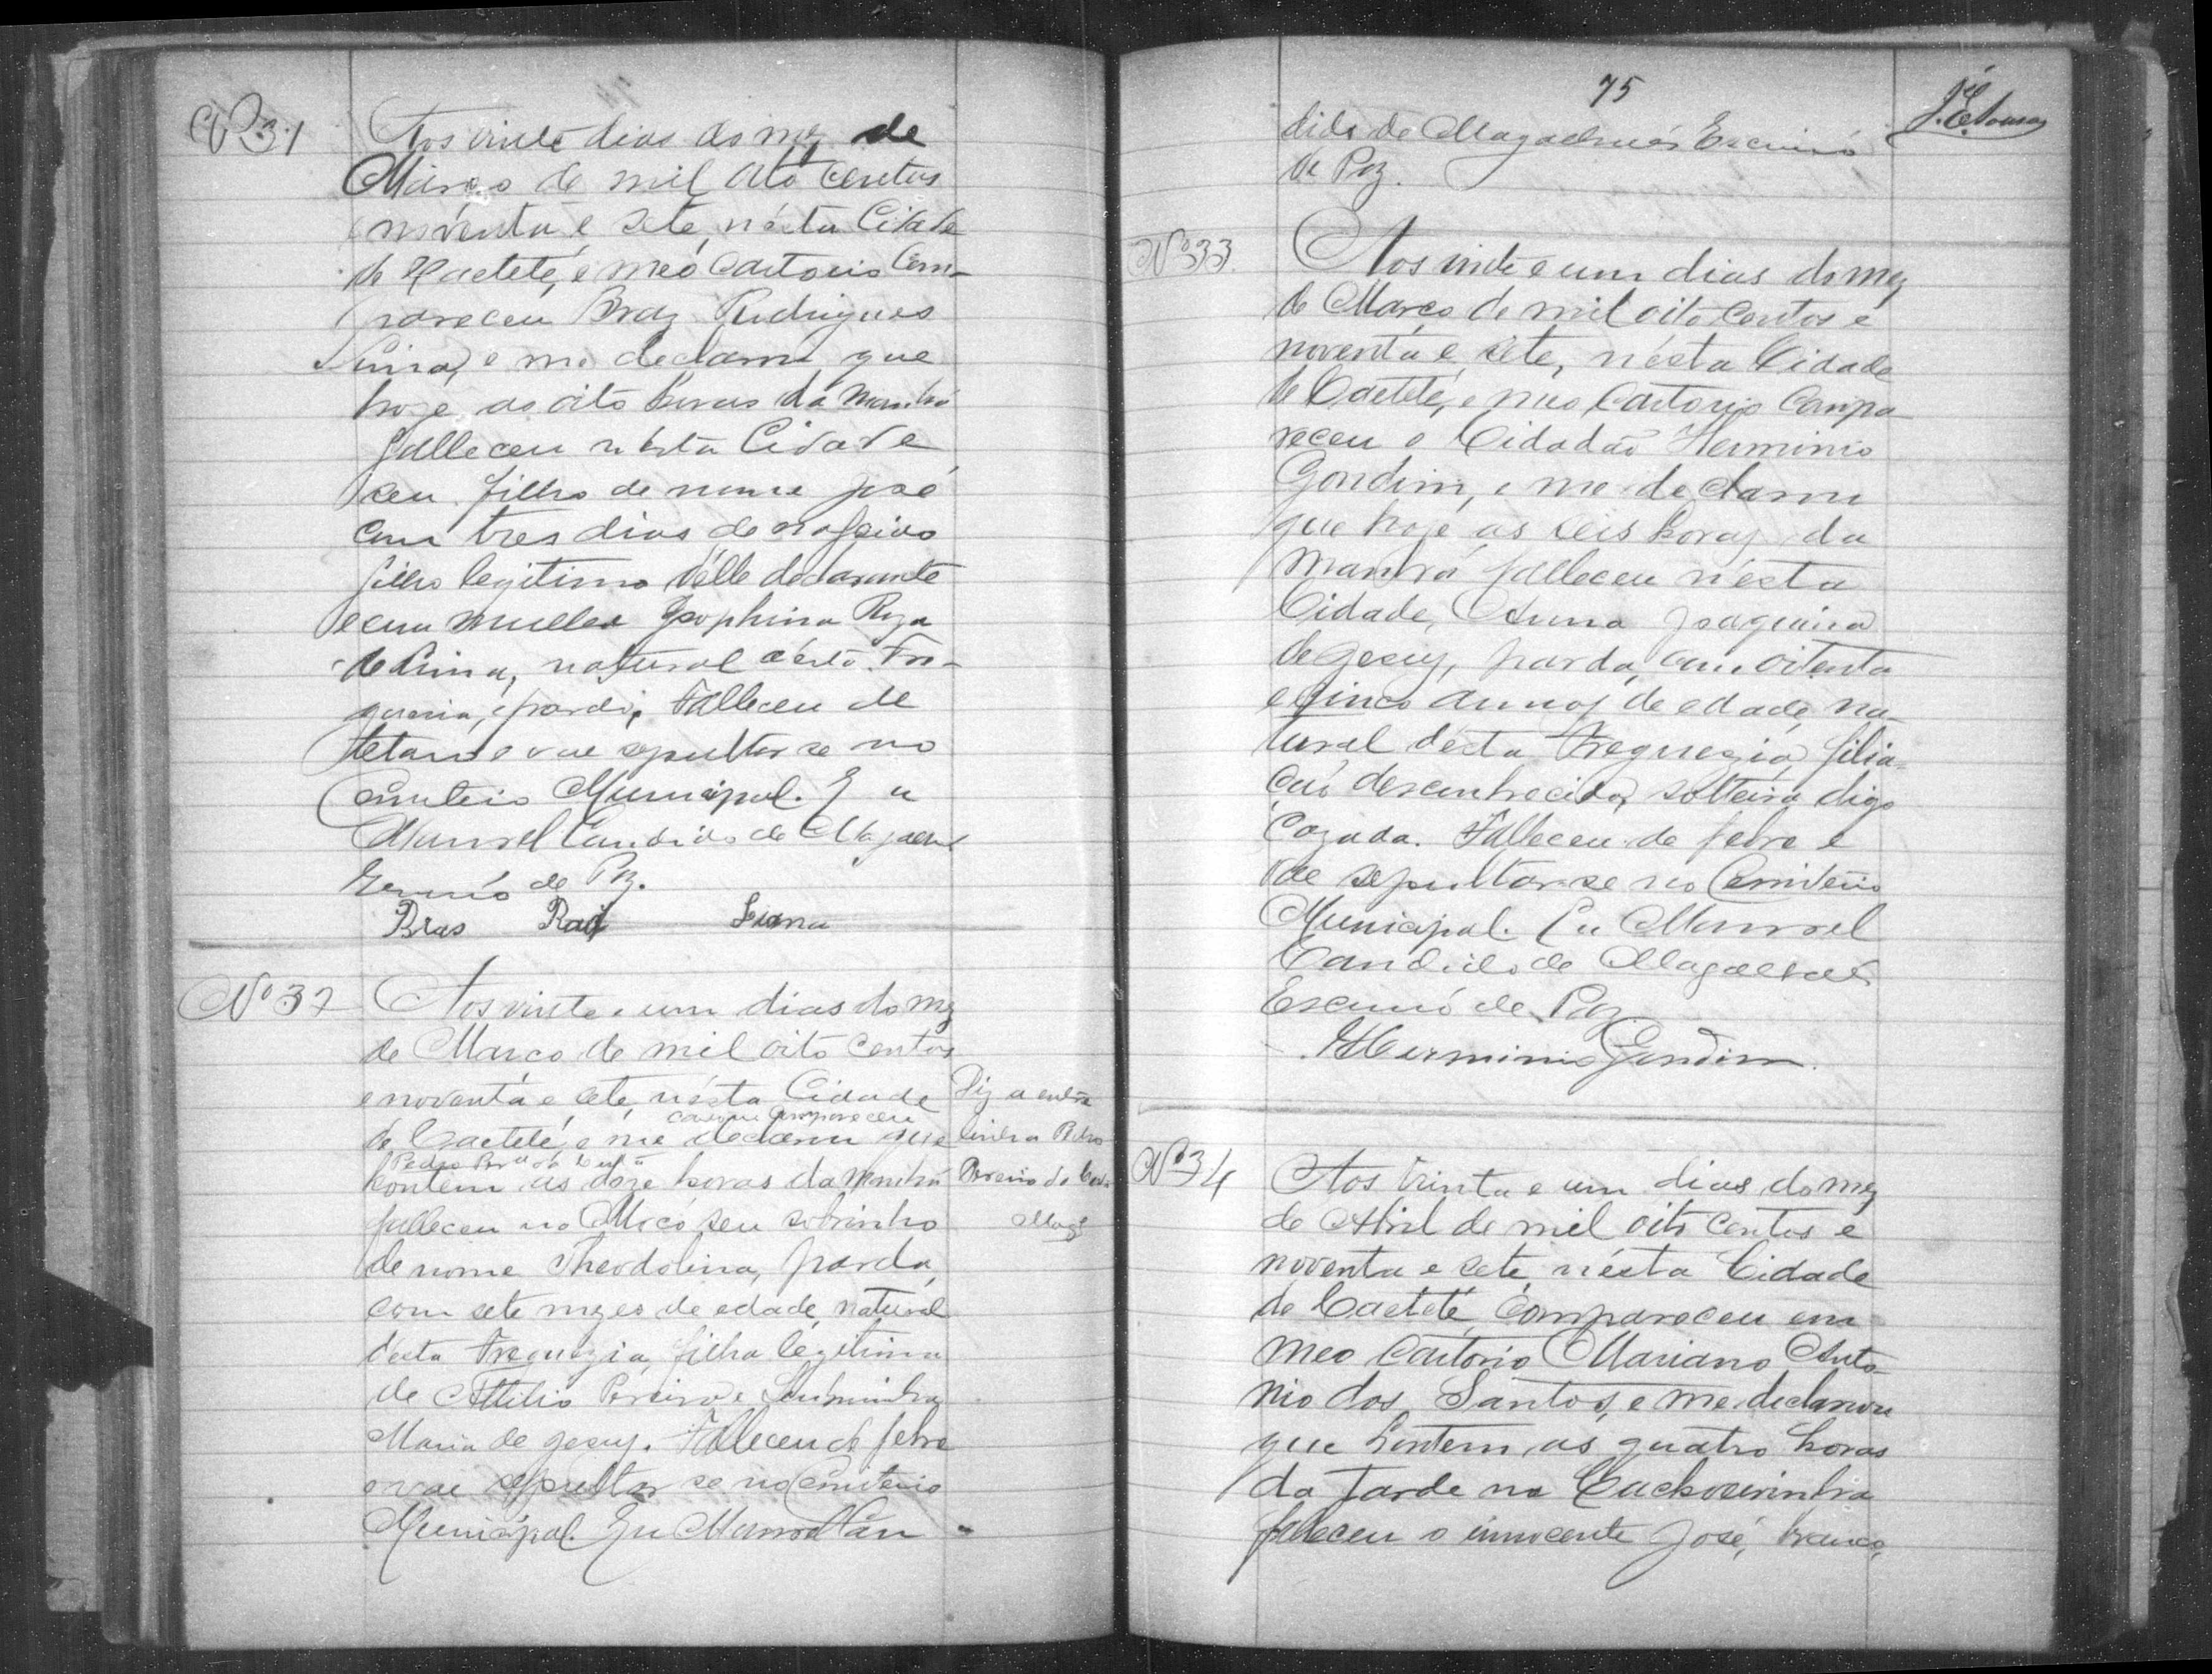 Nº 31
Aos vinte dias do mez de
Março de mil oito centos
e noventa e sete, nésta Cidade
de Caeteté, e meo Cartorio Com-
pareceu Braz Rodrigues
Lima, e me declarou que
hoje as oito horas da manhã
falleceu nésta Cidade
seu filho de nome José
com tres dias de nascido
filho legitimo délle declarante
e sua mulher Josophina Roza
de Lima, natural désta Fre-
guezia, pardo, Falleceu de
tetano e vae sepultar se no
Cemiterio Municipal. Eu
Manoel Candido de Magaens
Escrivão de Paz.
Bras Rod Lima
Nº 32
Aos vinte e um dias do mez
de Março de mil oito centos
e noventa e sete, nésta Cidade
compareceu
de Caeteté, e me declarou que
Pedro Perª da
hontem as doze horas da manhã
falleceu no Mocó seu sobrinho
de nome Theodolina, parda,
com sete mezes de edade, natural
desta Freguezia, filha legitima
de Attilio Pereira e
Maria de Jesuz. Falleceu de febre
e vae sepultar se no Cemiterio
Municipal. Eu Manoel Can
Diz a entre
linha Pedro
Pereira da
Magº
75
dido de Magaelhaes Escrivão
de Paz.
Nº 33
Aos vinte e um dias do mez
de Março de mil oito centos e
noventa e sete, nésta Cidade
de Caeteté, e meo Cartorio Compa
receu o Cidadão Herminio
Gondim, e me declarou
que hoje as seis horas da
manhã falleceu nésta
Cidade, Anna Joaquina
de Jesuz, parda, com oitenta
e sinco annos de edade, na-
tural désta Freguezia, filia-
ção desconhecida, solteira digo
Cazada. Falleceu de febre e
vae sepultar-se no Cemiterio
Municipal. Eu Manoel
Candido de Magaelhaes
Escrivão de Paz
Herminio Gondim.
Nº 34
Aos trinta e um dias do mez
de Abril de mil oito centos e
noventa e sete, nésta Cidade
de Caeteté, compareceu em
meo Cartorio Mariano Anto-
nio dos Santos, e me declarou
que hontem, as quatro horas
da tarde na Cachoeirinha
faleceu o innocente José, branco,